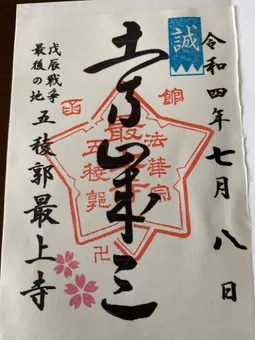 令和四年七月八日
誠
土方歳三
函館
法華宗
最上寺
五稜郭
戊辰戦争
最後の地
五稜郭最上寺